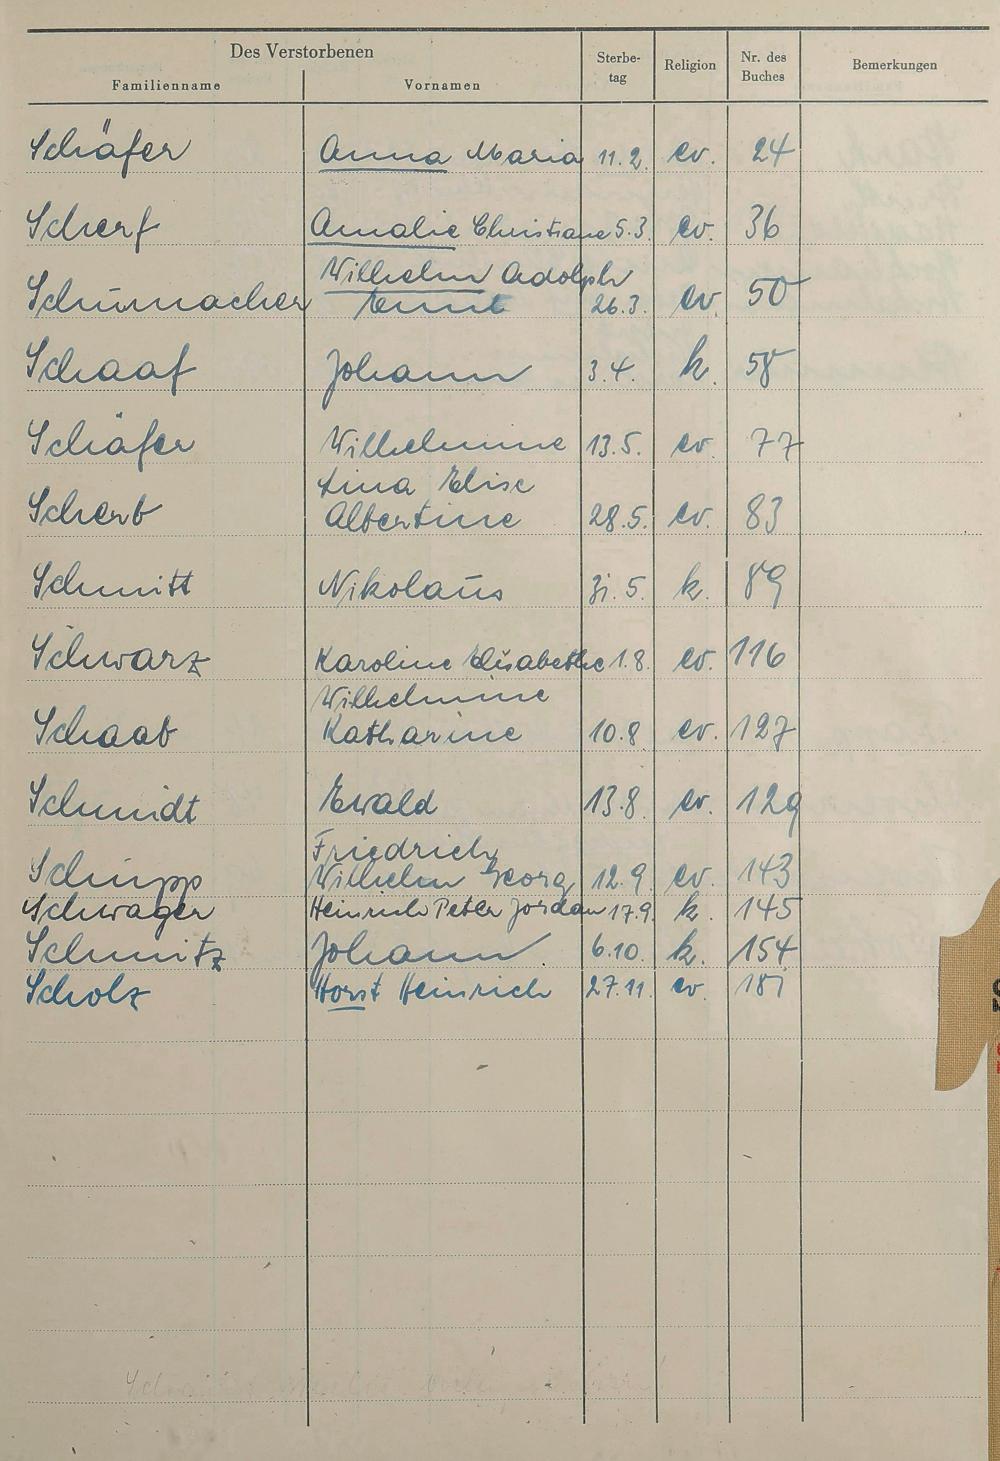 Des Verstorbenen
Familienname Vornamen Sterbe-tag Religion Nr. des Buches Bemerkungen
Schäfer Anna Maria 11.2. ev. 24
Scherf Amalie Christiane 5.3. ev. 36
Wilhelm Adolph
Schumacher Ernst 26.3. ev. 50
Schaaf Johann 3.4. k. 58
Schäfer Wilhelmine 13.5. ev. 77
Lina Elise
Scherb Albertine 28.5. ev. 83
Schmitt Nikolaus 31.5. k. 89
Schwarz Karoline Elisabethe 1.8. ev. 116
Wilhelmine
Schaab Katharine 10.8 ev. 127
Schmidt Ewald 13.8 ev. 129
Friedrich
Schupp Wilhelm Georg 12.9. ev. 143
Schwager Heinrich Peter Jordan 17.9. k. 145
Schmitz Johann. 6.10. k. 154
Scholz Horst Heinrich 27.11. ev. 181